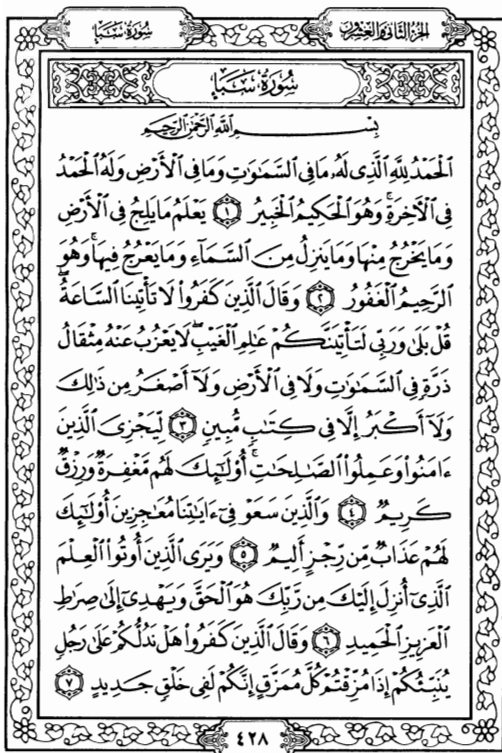 الجزء الثاني والعشرون
سُورَةُ سَبَإٍ
سُورَةُ سَبَإٍ
بِسْمِ اللَّهِ الرَّحْمَٰنِ الرَّحِيمِ
ٱلْحَمْدُ لِلَّهِ ٱلَّذِى لَهُۥ مَا فِى ٱلسَّمَٰوَٰتِ وَمَا فِى ٱلْأَرْضِ وَلَهُ ٱلْحَمْدُ
فِى ٱلْأَخِرَةِۚ وَهُوَ ٱلْحَكِيمُ ٱلْخَبِيرُ ١ يَعْلَمُ مَا يَلِجُ فِى ٱلْأَرْضِ
وَمَا يَخْرُجُ مِنْهَا وَمَا يَنزِلُ مِنَ ٱلسَّمَآءِ وَمَا يَعْرُجُ فِيهَاۚ وَهُوَ
ٱلرَّحِيمُ ٱلْغَفُورُ ٢ وَقَالَ ٱلَّذِينَ كَفَرُوا۟ لَا تَأْتِينَا ٱلسَّاعَةُۖ
قُلْ بَلَىٰ وَرَبِّى لَتَأْتِيَنَّكُمْ عَٰلِمِ ٱلْغَيْبِۖ لَا يَعْزُبُ عَنْهُ مِثْقَالُ
ذَرَّةٍ فِى ٱلسَّمَٰوَٰتِ وَلَا فِى ٱلْأَرْضِ وَلَآ أَصْغَرُ مِن ذَٰلِكَ
وَلَآ أَكْبَرُ إِلَّا فِى كِتَٰبٍ مُّبِينٍ ٣ لِّيَجْزِىَ ٱلَّذِينَ
ءَامَنُوا۟ وَعَمِلُوا۟ ٱلصَّٰلِحَٰتِۚ أُو۟لَٰٓئِكَ لَهُم مَّغْفِرَةٌ وَرِزْقٌ
كَرِيمٌ ٤ وَٱلَّذِينَ سَعَوْ فِىٓ ءَايَٰتِنَا مُعَٰجِزِينَ أُو۟لَٰٓئِكَ
لَهُمْ عَذَابٌ مِّن رِّجْزٍ أَلِيمٌ ٥ وَيَرَى ٱلَّذِينَ أُوتُوا۟ ٱلْعِلْمَ
ٱلَّذِىٓ أُنزِلَ إِلَيْكَ مِن رَّبِّكَ هُوَ ٱلْحَقَّ وَيَهْدِىٓ إِلَىٰ صِرَٰطِ
ٱلْعَزِيزِ ٱلْحَمِيدِ ٦ وَقَالَ ٱلَّذِينَ كَفَرُوا۟ هَلْ نَدُلُّكُمْ عَلَىٰ رَجُلٍ
يُنَبِّئُكُمْ إِذَا مُزِّقْتُمْ كُلَّ مُمَزَّقٍ إِنَّكُمْ لَفِى خَلْقٍ جَدِيدٍ ٧
٤٢٨